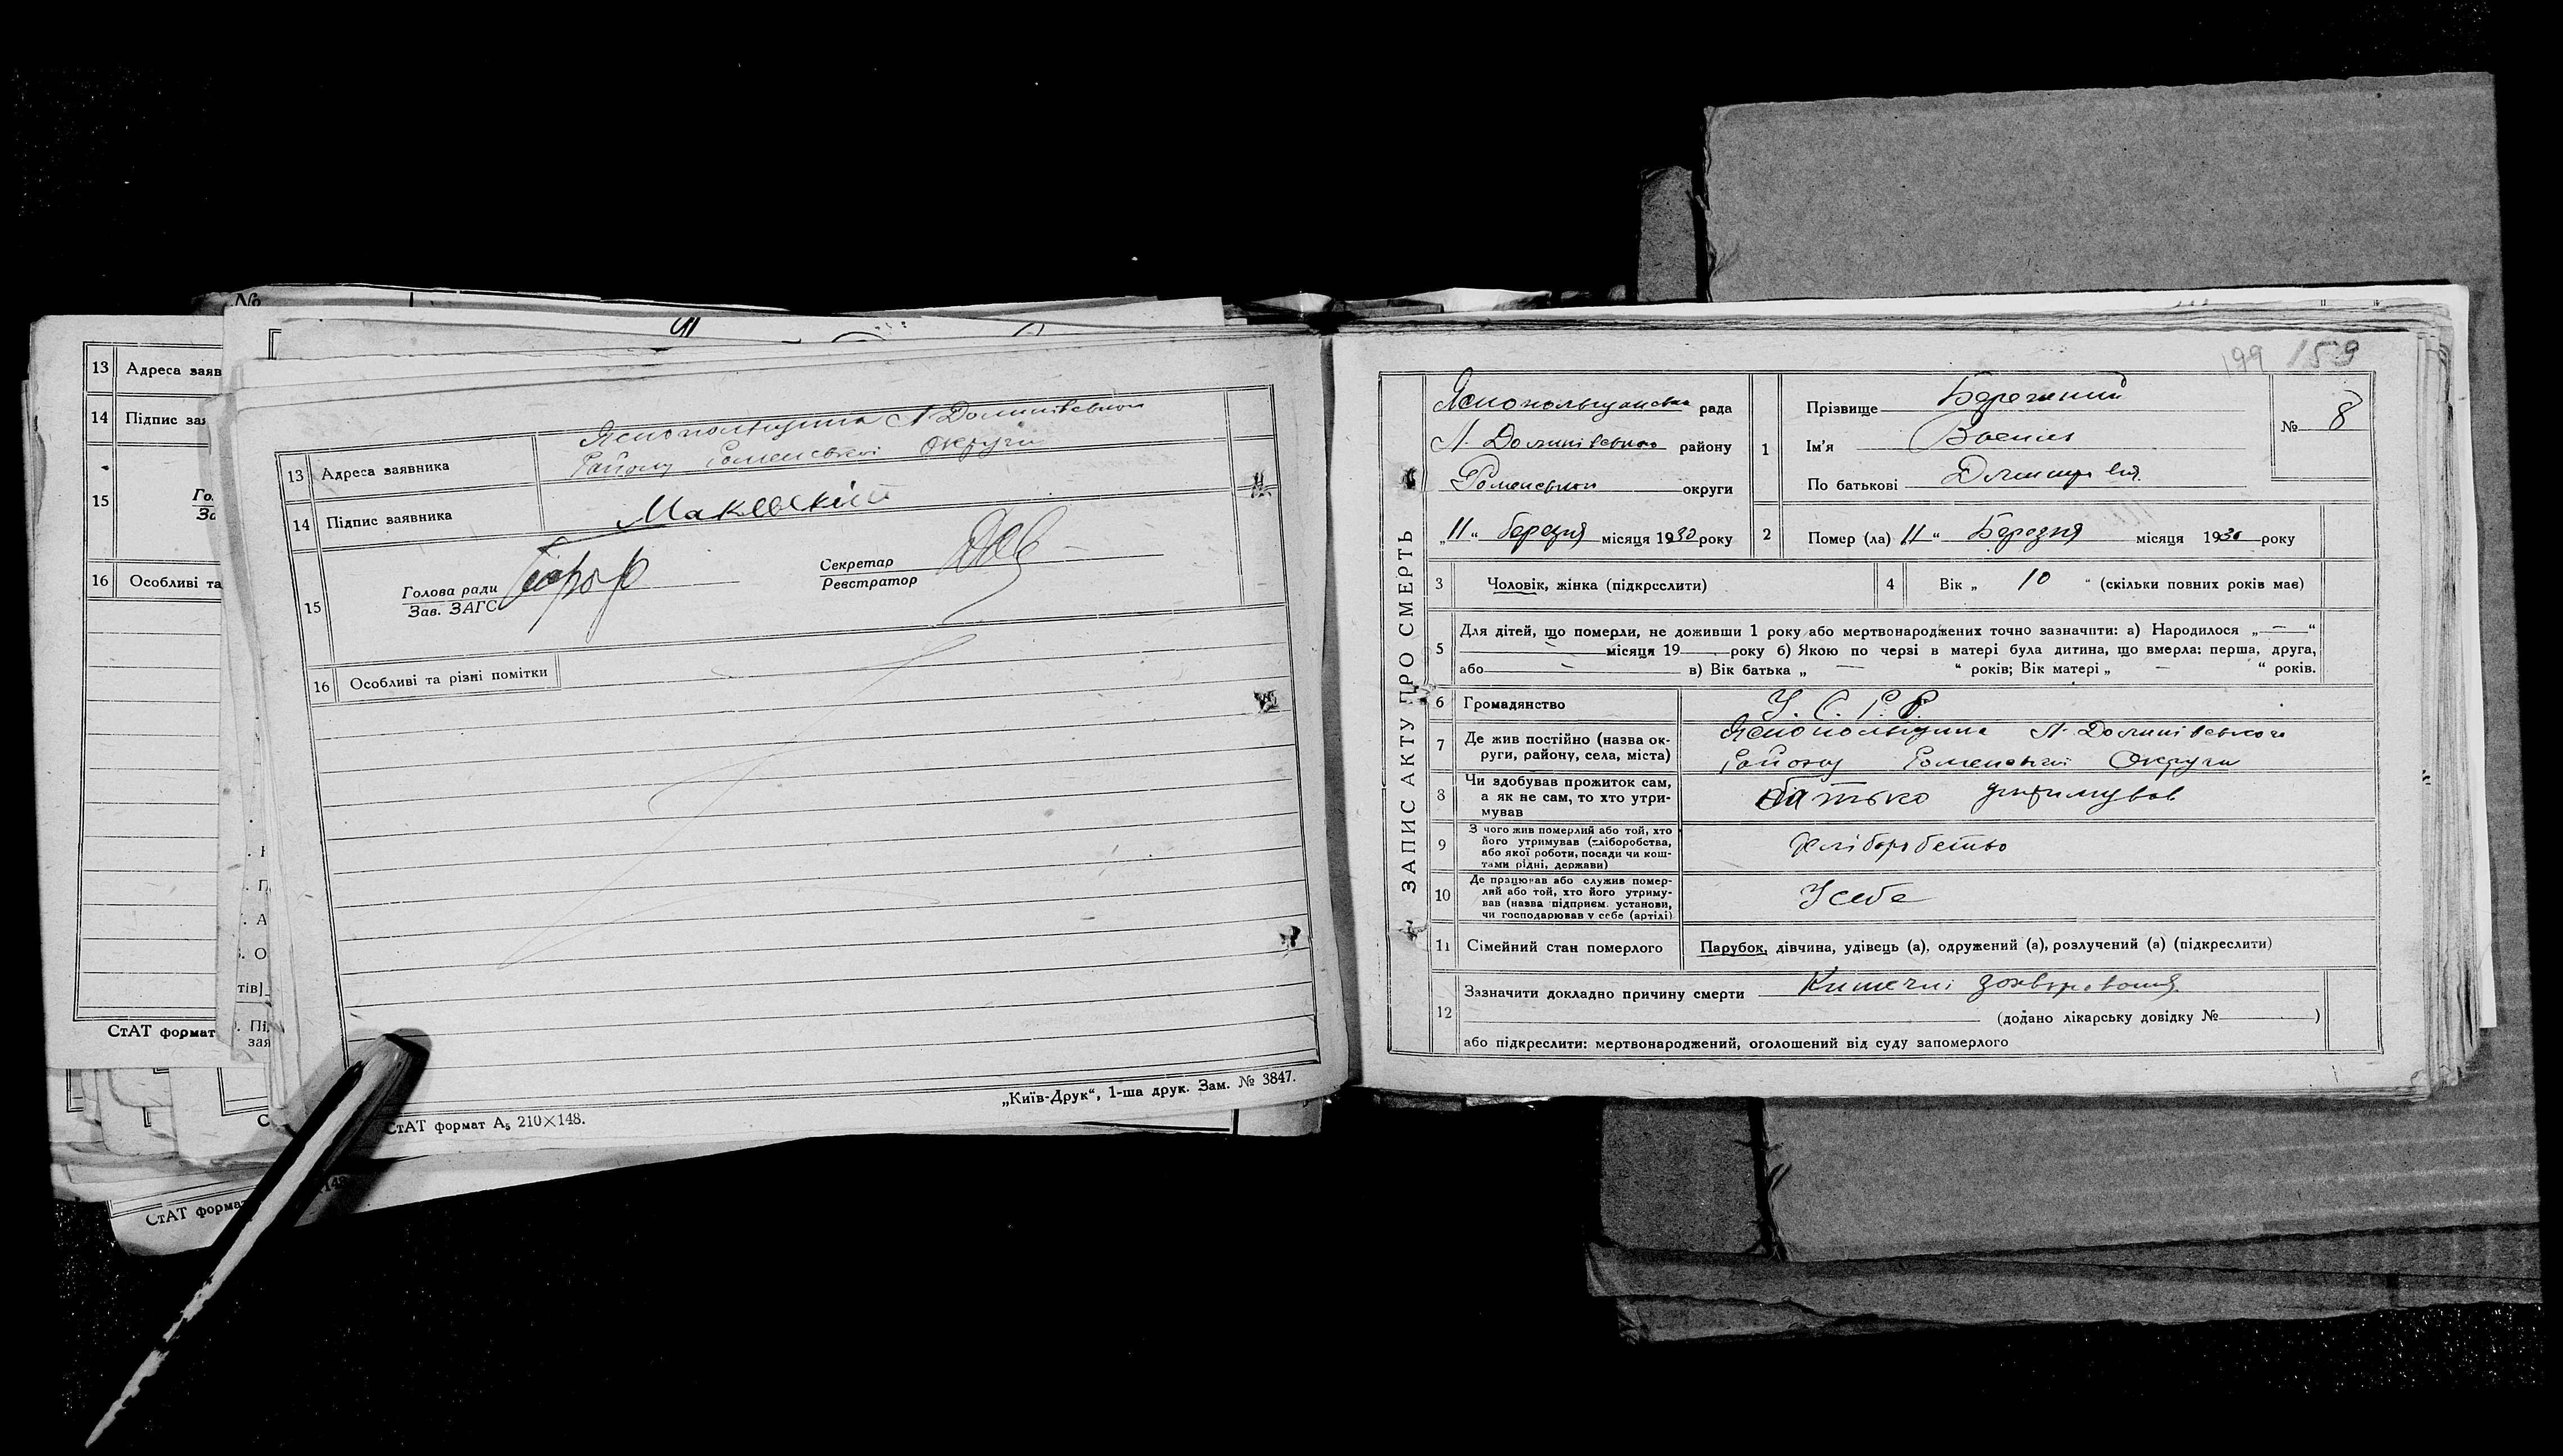 №
13 Адреса заяв
14 Підпис зая
15 Го.
За
16 Особливі та
СтАТ формат
13 Адреса заявника Яснопольщина Л-Долинівського
Району Роменської Округи
14 Підпис заявника Макевскій
15 Голова ради
Зав. ЗАГС
Секретар
Реєстратор
16 Особливі та різні помітки
„Київ-Друк“, 1-ша друк. Зам. № 3847.
СтАТ формат А₅ 210×148.
СтАТ формат
199 159
ЗАПИС АКТУ ПРО СМЕРТЬ
Яснопольщанська рада
Л. Долинівського району
Роменської округи
„11“ березня місяця 1930 року
1 Прізвище
Ім'я Василь
По батькові
№ 8
2 Помер (ла) „11“ Березня місяця 1930 року
3 Чоловік, жінка (підкреслити)
4 Вік „ 10 “ (скільки повних років має)
5 Для дітей, що померли, не доживши 1 року або мертвонароджених точно зазначити: а) Народилося „—“
місяця 19 року б) Якою по черзі в матері була дитина, що вмерла: перша, друга,
або в) Вік батька „ — “ років; Вік матері „ — “ років.
6 Громадянство У. С. Р. Р.
7 Де жив постійно (назва ок-
руги, району, села, міста)
Яснопольщина Л-Долинівського
Району Роменської Округи
8 Чи здобував прожиток сам,
а як не сам, то хто утри-
мував
батько утримував
9 З чого жив померлий або той, хто
його утримував (хліборобства,
або якої роботи, посади чи кош-
тами рідні, держави)
Хліборобство
10 Де працював або служив помер-
лий або той, хто його утриму-
вав (назва підприєм. установи,
чи господарював у себе (артілі)
У себе
11 Сімейний стан померлого Парубок, дівчина, удівець (а), одружений (а), розлучений (а) (підкреслити)
12 Зазначити докладно причину смерти Кишечні
(додано лікарську довідку № )
або підкреслити: мертвонароджений, оголошений від суду запомерлого